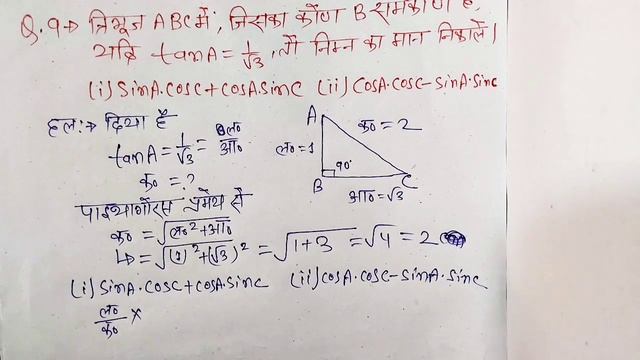 Q.9→ त्रिभुज ABC में, जिसका कोण B समकोण है,
यदि tanA = 1/√3, तो निम्न का मान निकालें।
(i) SinA·CosC + CosA SinC (ii) CosA·CosC - SinA·SinC
हल:→ दिया है
tanA = 1/√3 = ल०/आ०
क० = ?
A
ल० = 1
क० = 2
90°
B
C
आ० = √3
पाइथागोरस प्रमेय से
क० = √ल०²+आ०
↳ = √(1)²+(√3)² = √1+3 = √4 = 2
(i) SinA·CosC + CosA·SinC (ii) CosA·CosC - SinA·SinC
ल०/क० ×